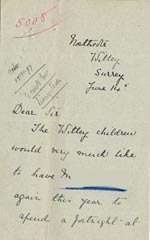 5008
Witley
Surrey
June 14th
Dear Sir
The Witley children
would very much like
to have
again this year to
spend a fortnight at